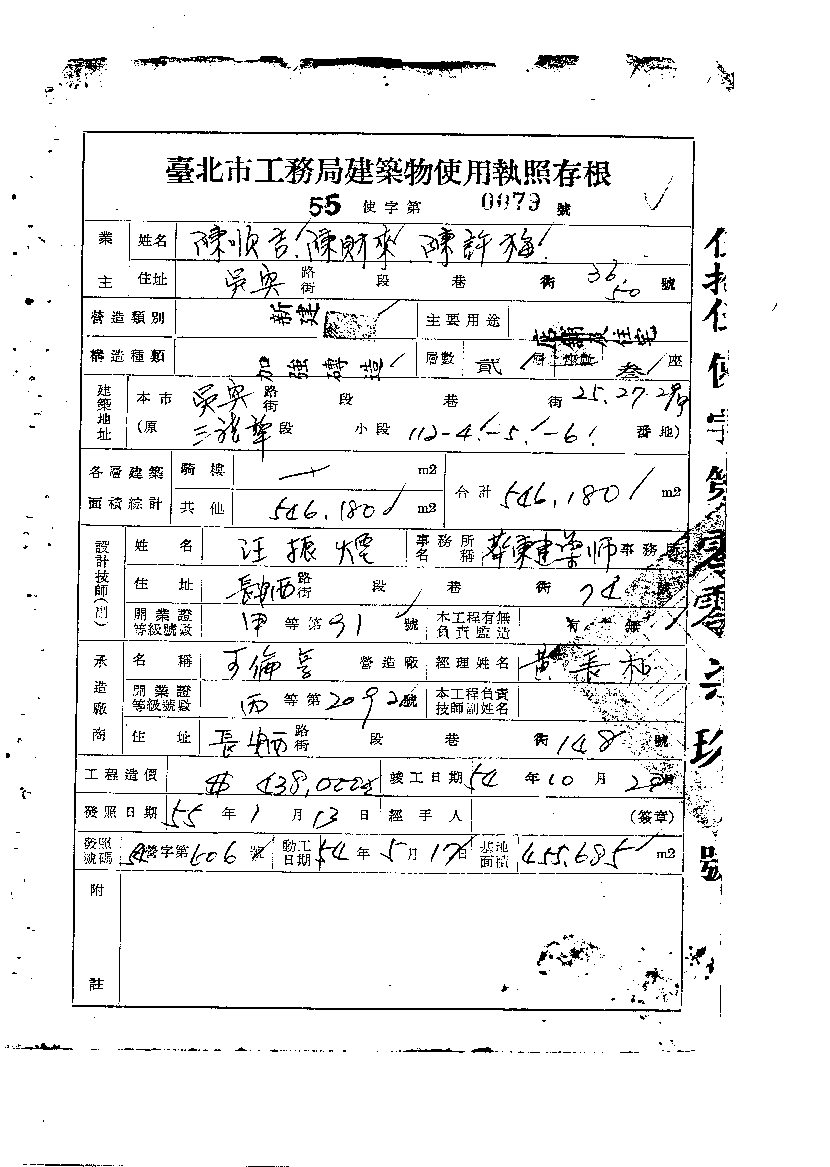 臺北市工務局建築物使用執照存根
55 使字第 0079 號
業主 姓名 陳順吉 陳財來 陳許梅
住址 吳興 路街 段 巷 衖 36 50 號
營造類別 新建 主要用途 店舖及住宅
構造種類 加強磚造 層數 貳層 棟數 叁座
建築地址 本市 吳興 路街 段 巷 衖 25.27.29號
(原 三張犂段 小段 112-4 -5 -6 番地)
各層建築面積綜計 騎樓 — m2 合計 546.180 m2
其他 546.180 m2
設計技師(副) 姓名 汪振煙 事務所名稱 建築師事務所
住址 長安西 路街 段 巷 衖 74 號
開業證等級號數 甲等第 91 號 本工程有無負責監造 有 無
承造廠商 名稱 營造廠 經理姓名 黃長和
開業證等級號數 丙等第 2092 號 本工程負責技師副姓名
住址 長安西 路街 段 巷 衖 148 號
工程造價 $ 438,000 竣工日期 54年10月28日
發照日期 55年1月13日 經手人 (簽章)
發照號碼 營字第 606 號 動工日期 54年5月17日 基地面積 455.685 m2
附註
伍拾伍使字第零零柒玖號